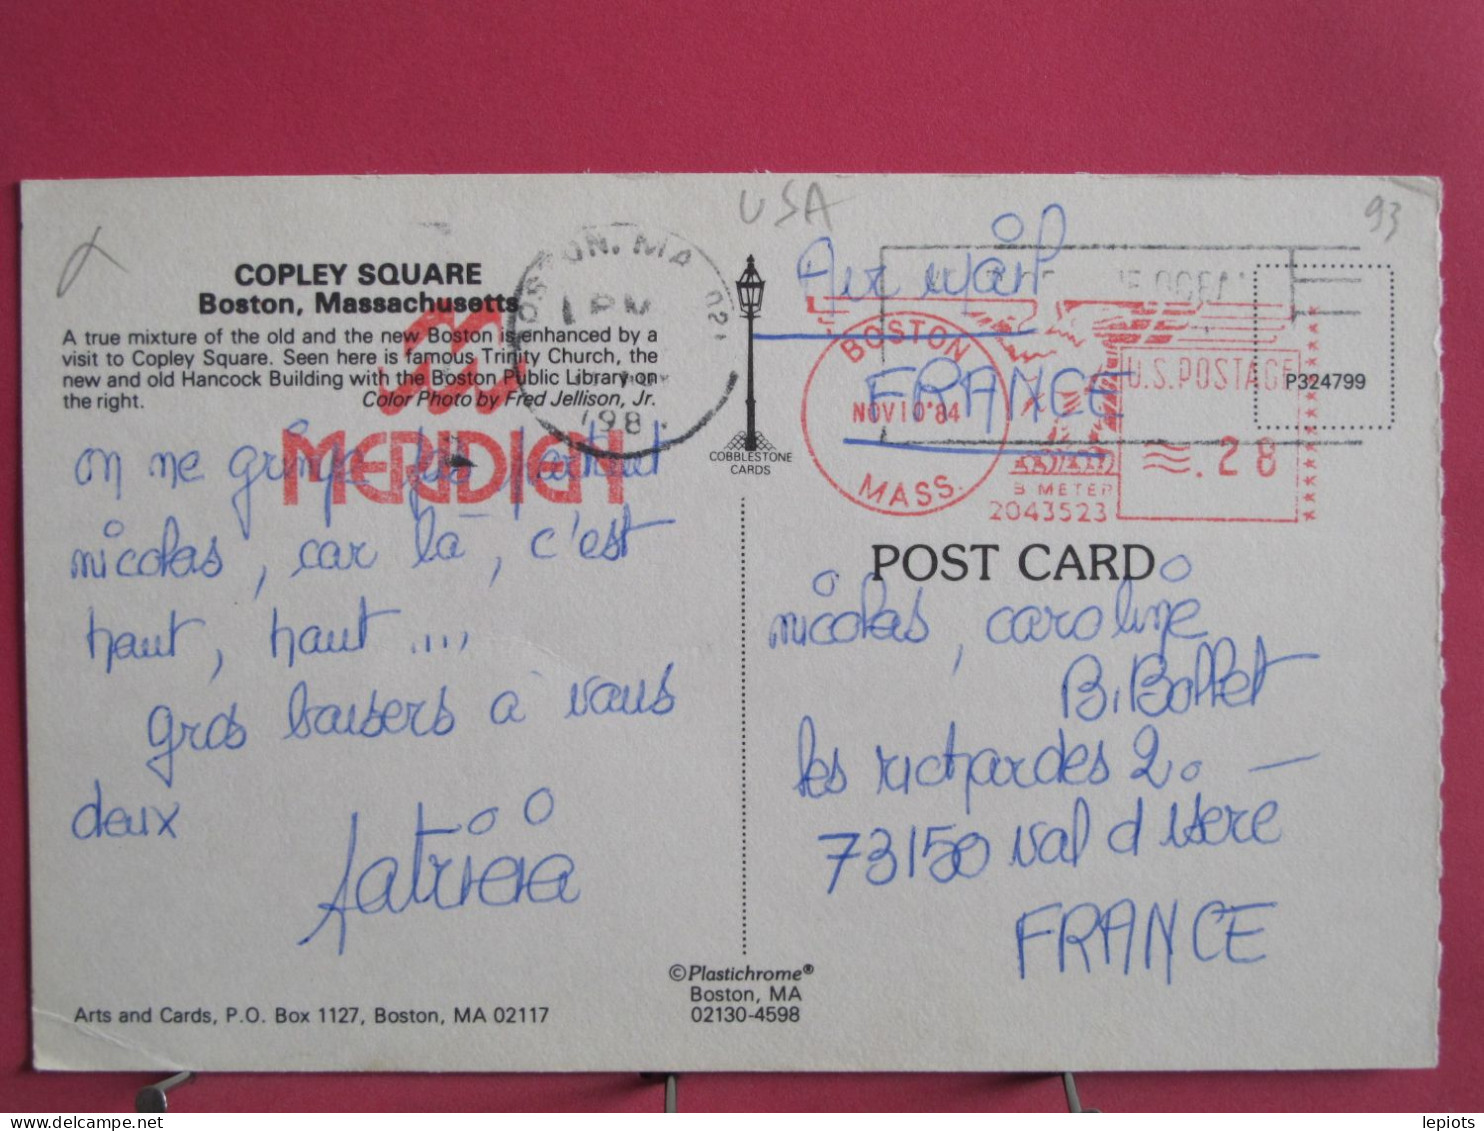 USA
93
COPLEY SQUARE
Boston, Massachusetts
A true mixture of the old and the new Boston is enhanced by a
visit to Copley Square. Seen here is famous Trinity Church, the
new and old Hancock Building with the Boston Public Library on
the right.
Color Photo by Fred Jellison, Jr.
MERIDIEN
on ne grimpe pas partout
nicolas, car là, c'est
haut, haut....
gros baisers à vous
deux
Patricia
BOSTON, MA 021
1 PM
198
COBBLESTONE
CARDS
Air mail
FRANCE
BOSTON
NOV10'84
MASS.
U.S. POSTAGE
.28
B METER
2043523
P324799
POST CARD
nicolas, caroline
B. Bollet
les richardes 2. —
73150 val d isere
FRANCE
©Plastichrome®
Boston, MA
02130-4598
Arts and Cards, P.O. Box 1127, Boston, MA 02117
lepiots